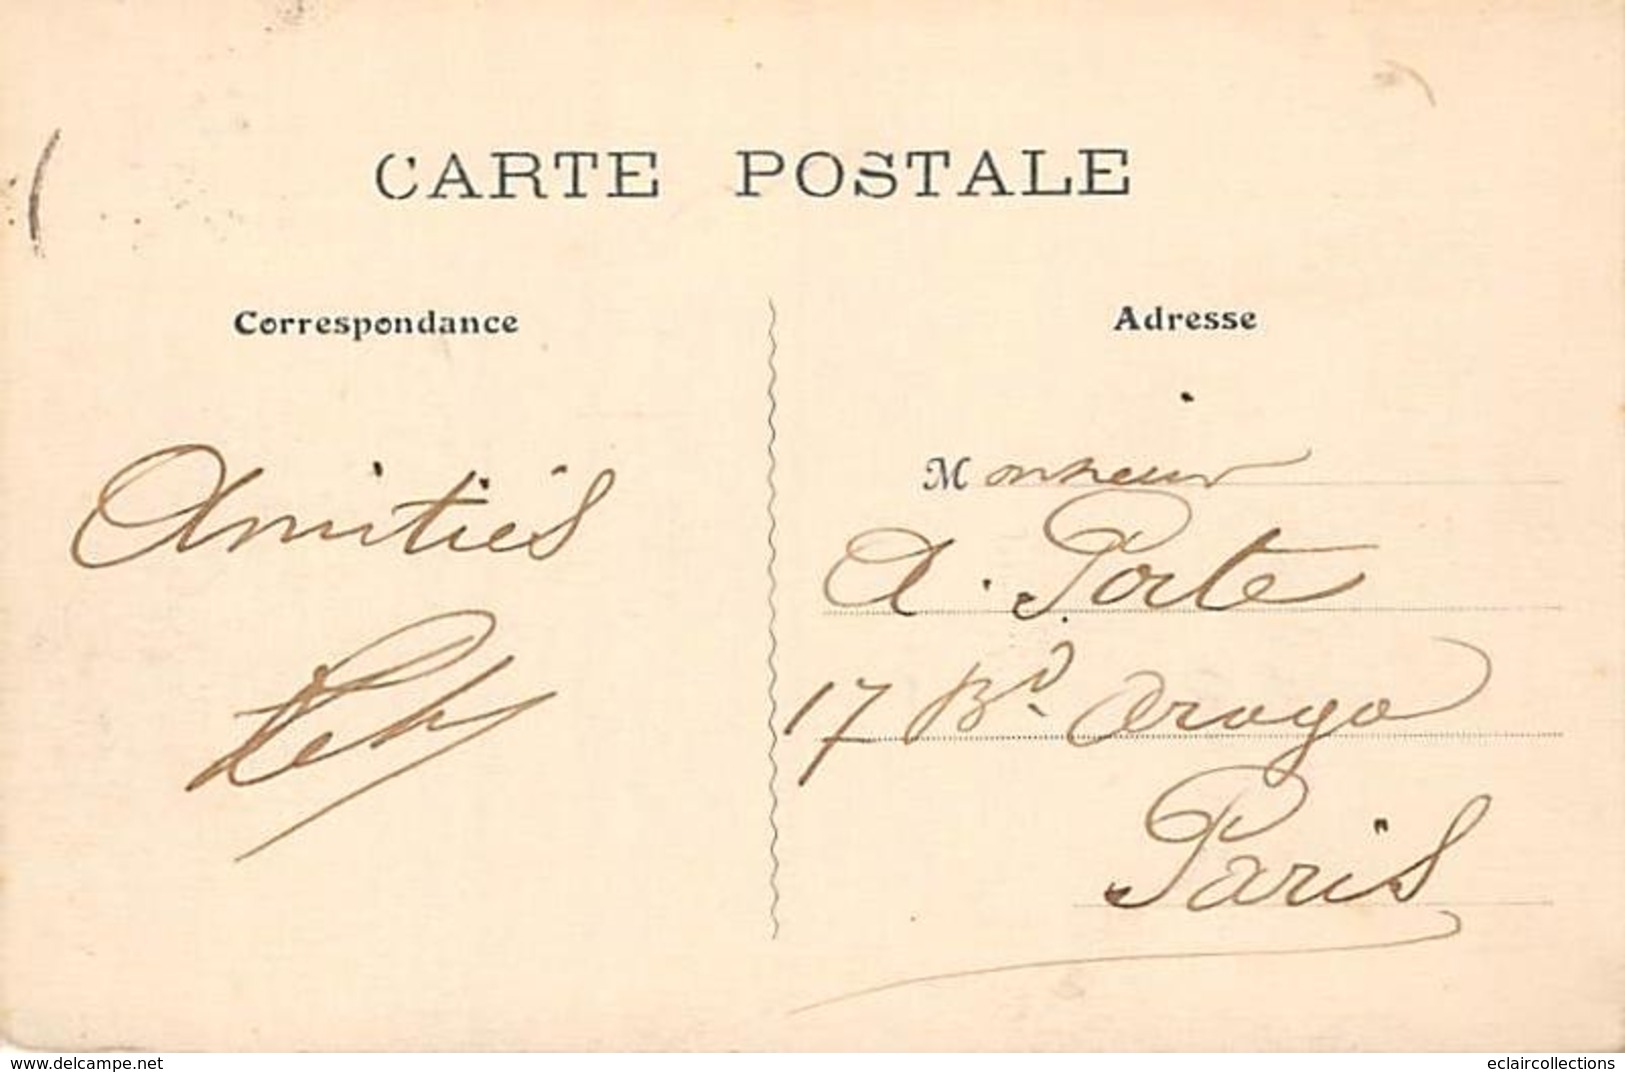 CARTE POSTALE
Correspondance
Adresse
Amitiés
Monsieur
A. Porte
17 Bd. Arago
Paris
www.delcampe.net
eclaircollections